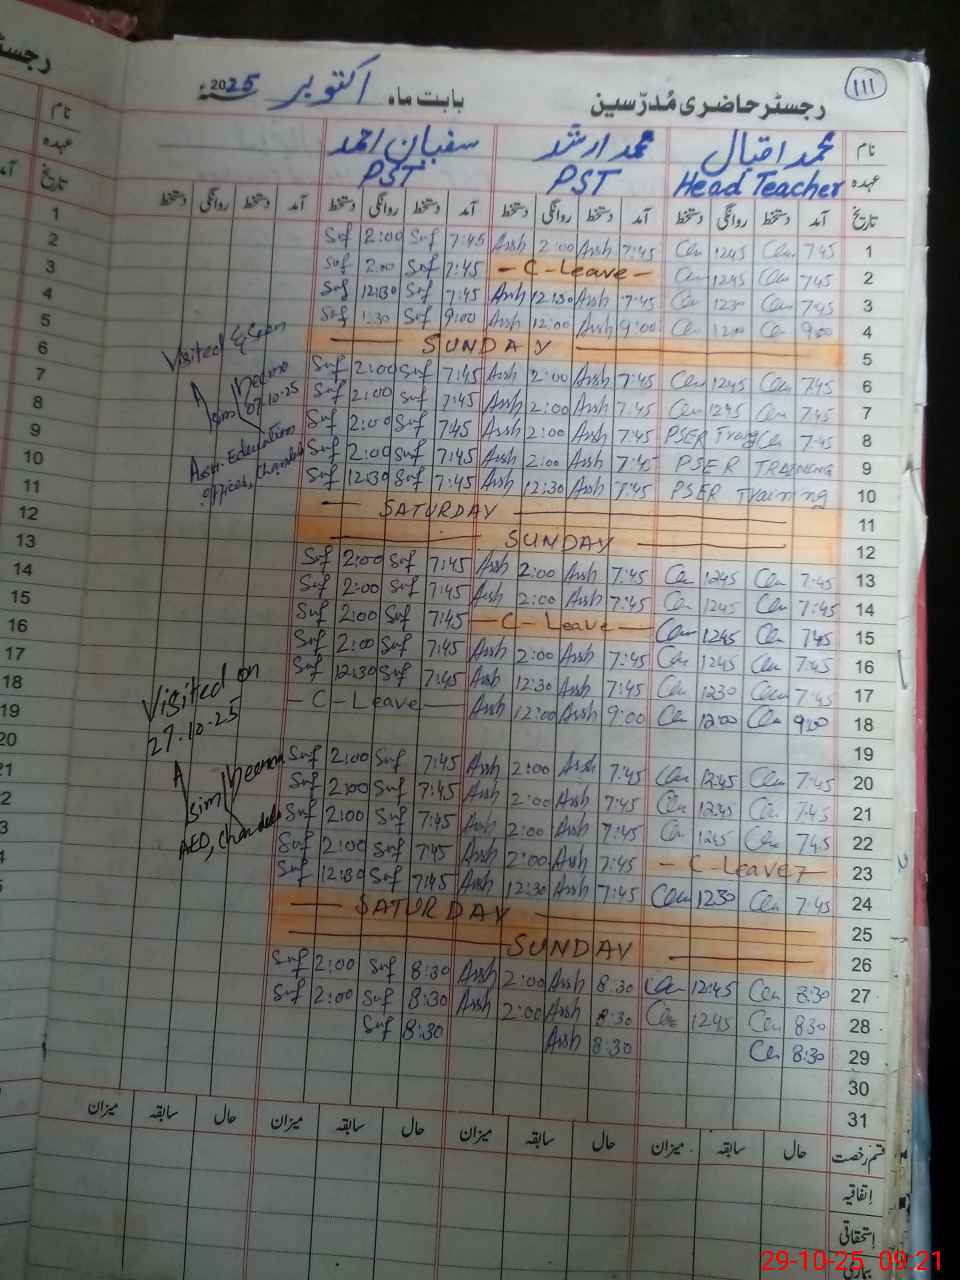 111
رجسٹر حاضری مُدرّسین بابت ماہ اکتوبر 2025ء
نام محمد اقبال محمد ارشد سفیان احمد
عہدہ Head Teacher PST PST
تاریخ آمد دستخط روانگی دستخط آمد دستخط روانگی دستخط آمد دستخط روانگی دستخط آمد دستخط روانگی دستخط
1 7:45 1245 7:45 Arsh 2:00 Arsh 7:45 Suf 2:00 Suf
2 745 1245 - C - Leave - 7:45 Suf 2:00 Suf
3 7:45 1230 7:45 Arsh 12:30 Arsh 7:45 Suf 12:30 Suf
4 9:00 1200 9:00 Arsh 12:00 Arsh 9:00 Suf 1:30 Suf
5 SUNDAY
6 745 1245 7:45 Arsh 2:00 Arsh 7:45 Suf 2:00 Suf
7 7:45 1245 7:45 Arsh 2:00 Arsh 7:45 Suf 2:00 Suf
8 7:45 PSER 7:45 Arsh 2:00 Arsh 7:45 Suf 2:00 Suf
9 PSER TRAINING 7:45 Arsh 2:00 Arsh 7:45 Suf 2:00 Suf
10 PSER Training 7:45 Arsh 12:30 Arsh 7:45 Suf 12:30 Suf
11 SATURDAY
12 SUNDAY
13 7:45 1245 7:45 Arsh 2:00 Arsh 7:45 Suf 2:00 Suf
14 7:45 1245 7:45 Arsh 2:00 Arsh 7:45 Suf 2:00 Suf
15 7:45 1245 - C - Leave - 7:45 Suf 2:00 Suf
16 7:45 1245 7:45 Arsh 2:00 Arsh 7:45 Suf 2:00 Suf
17 7:45 1230 7:45 Arsh 12:30 Arsh 7:45 Suf 12:30 Suf
18 9:00 1200 9:00 Arsh 12:00 Arsh - C - Leave -
19
20 7:45 12:45 7:45 Arsh 2:00 Arsh 7:45 Suf 2:00 Suf
21 7:45 12:45 7:45 Arsh 2:00 Arsh 7:45 Suf 2:00 Suf
22 745 1245 7:45 Arsh 2:00 Arsh 7:45 Suf 2:00 Suf
23 - C - Leave - 7:45 Arsh 2:00 Arsh 7:45 Suf 2:00 Suf
24 7:45 1230 7:45 Arsh 12:30 Arsh 7:45 Suf 12:30 Suf
25 SATURDAY
26 SUNDAY
27 8:30 12:45 8:30 Arsh 2:00 Arsh 8:30 Suf 2:00 Suf
28 830 1245 8:30 Arsh 2:00 Arsh 8:30 Suf 2:00 Suf
29 8:30 8:30 Arsh 8:30 Suf
30
31
قسم رخصت حال سابقہ میزان حال سابقہ میزان حال سابقہ میزان حال سابقہ میزان
اتفاقیہ
استحقاقی
بیماری
Visited & Seen
07-10-25
Asst. Education
Visited on
27.10-25
AEO,
رجسٹر
نام
عہدہ
تاریخ
1
2
3
4
5
6
7
8
9
10
11
12
13
14
15
16
17
18
29-10-25 09:21